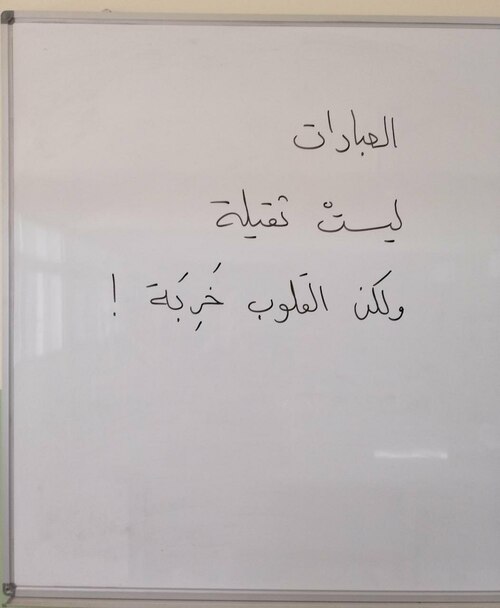 العبادات
ليستْ ثقيلة
ولكن القلوب خَرِبَة !